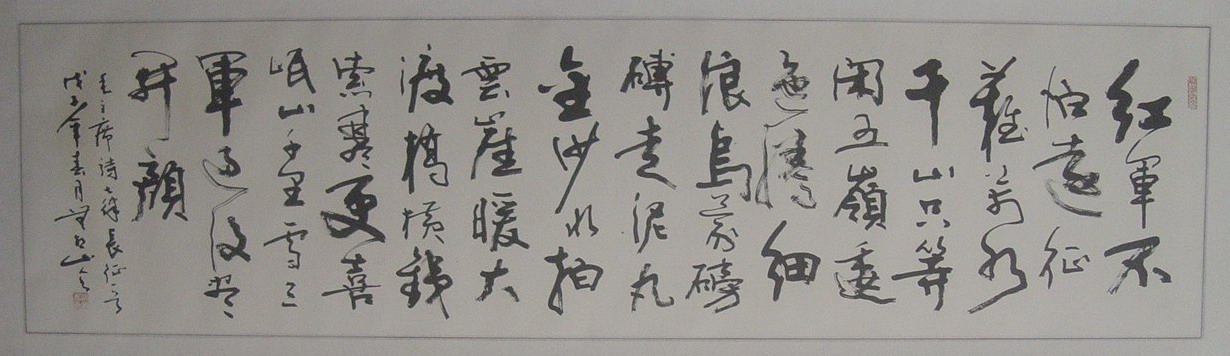 紅軍不
怕遠征
難萬水
千山只等
閑五嶺逶
迤騰細
浪烏蒙磅
礴走泥丸
金沙水拍
雲崖暖大
渡橋橫鐵
索寒更喜
岷山千里雪三
軍過後盡
开顏
毛主席詩七律長征一首
戊子年春月